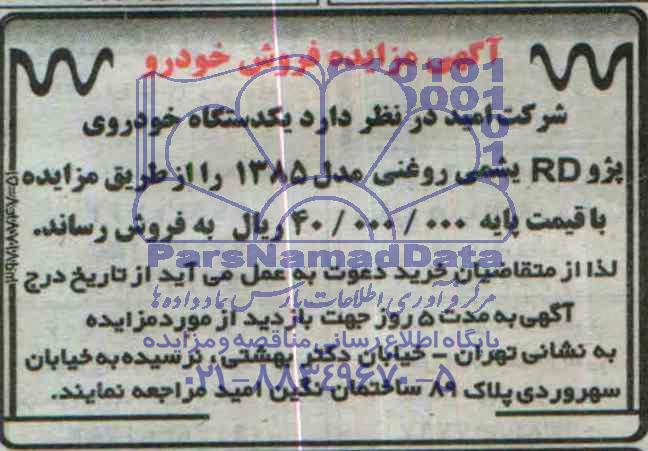 آگهی مزایده فروش خودرو
شرکت امید در نظر دارد یکدستگاه خودروی
پژو RD یشمی روغنی مدل ۱۳۸۵ را از طریق مزایده
با قیمت پایه ۴۰/۰۰۰/۰۰۰ ریال به فروش رساند.
ParsNamadData
لذا از متقاضیان خرید دعوت به عمل می آید از تاریخ درج
مرکز فرآوری اطلاعات پارس نماد داده ها
آگهی به مدت ۵ روز جهت بازدید از مورد مزایده
پایگاه اطلاع رسانی مناقصه و مزایده
به نشانی تهران – خیابان دکتر بهشتی، نرسیده به خیابان
۰۲۱-۸۸۳۴۹۶۷۰-۵
سهروردی پلاک ۸۹ ساختمان نگین امید مراجعه نمایند.